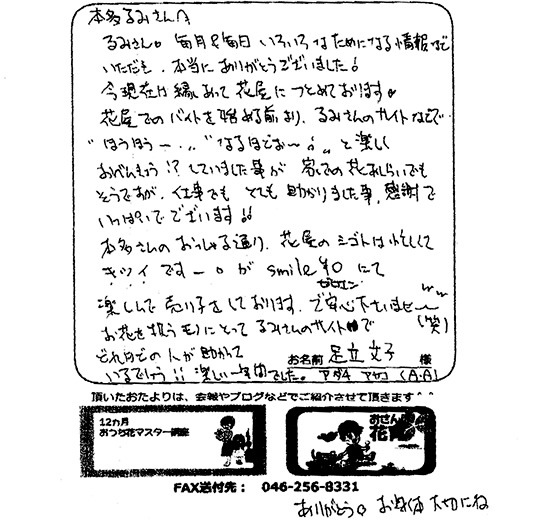 本多るみさんへ
るみさん。毎月&毎日 いろいろなためになる情報など
いただき、本当にありがとうございました!
今現在は縁あって花屋につとめております。
花屋でのバイトを始める前より、るみさんのサイトなどで
"ほうほう〜..." "なるほどぉ〜。" と楽しく
おべんきょう!? していました事が 家での花あしらいでも
そうですが、仕事でも とても助かりました事、感謝で
いっぱいでございます!!
本多さんのおっしゃる通り、花屋のシゴトは忙しくて
キツイです〜。が smile ¥0 にて
ゼロエン
楽しんで売り子をしております。ご安心下さいませ〜
(笑)
お花を扱うモノにとって るみさんのサイトで
どれほどの人が助かって
いるでしょう!! 楽しい一年間でした。
お名前 足立文子 様
アダチ アヤコ (A.A)
頂いたおたよりは、会報やブログなどでご紹介させて頂きます^^
12カ月
おうち花マスター講座
おさんぽ
花
FAX送付先: 046-256-8331
ありがとう。お身体大切にね